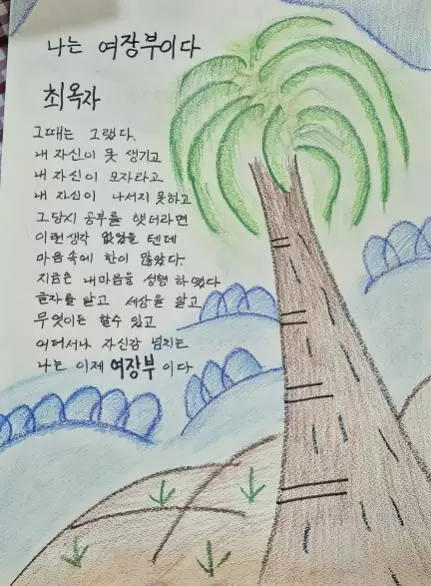 나는 여장부이다
최옥자
그때는 그랬다.
내 자신이 못 생기고
내 자신이 모자라고
내 자신이 나서지 못하고
그당시 공부를 햇더라면
이런생각 없었을 텐데
마음속에 한이 많았다.
지금은 내마음을 성형 하였다
글자를 알고 세상을 알고
무엇이든 할수 있고
어디서나 자신감 넘치는
나는 이제 여장부 이다